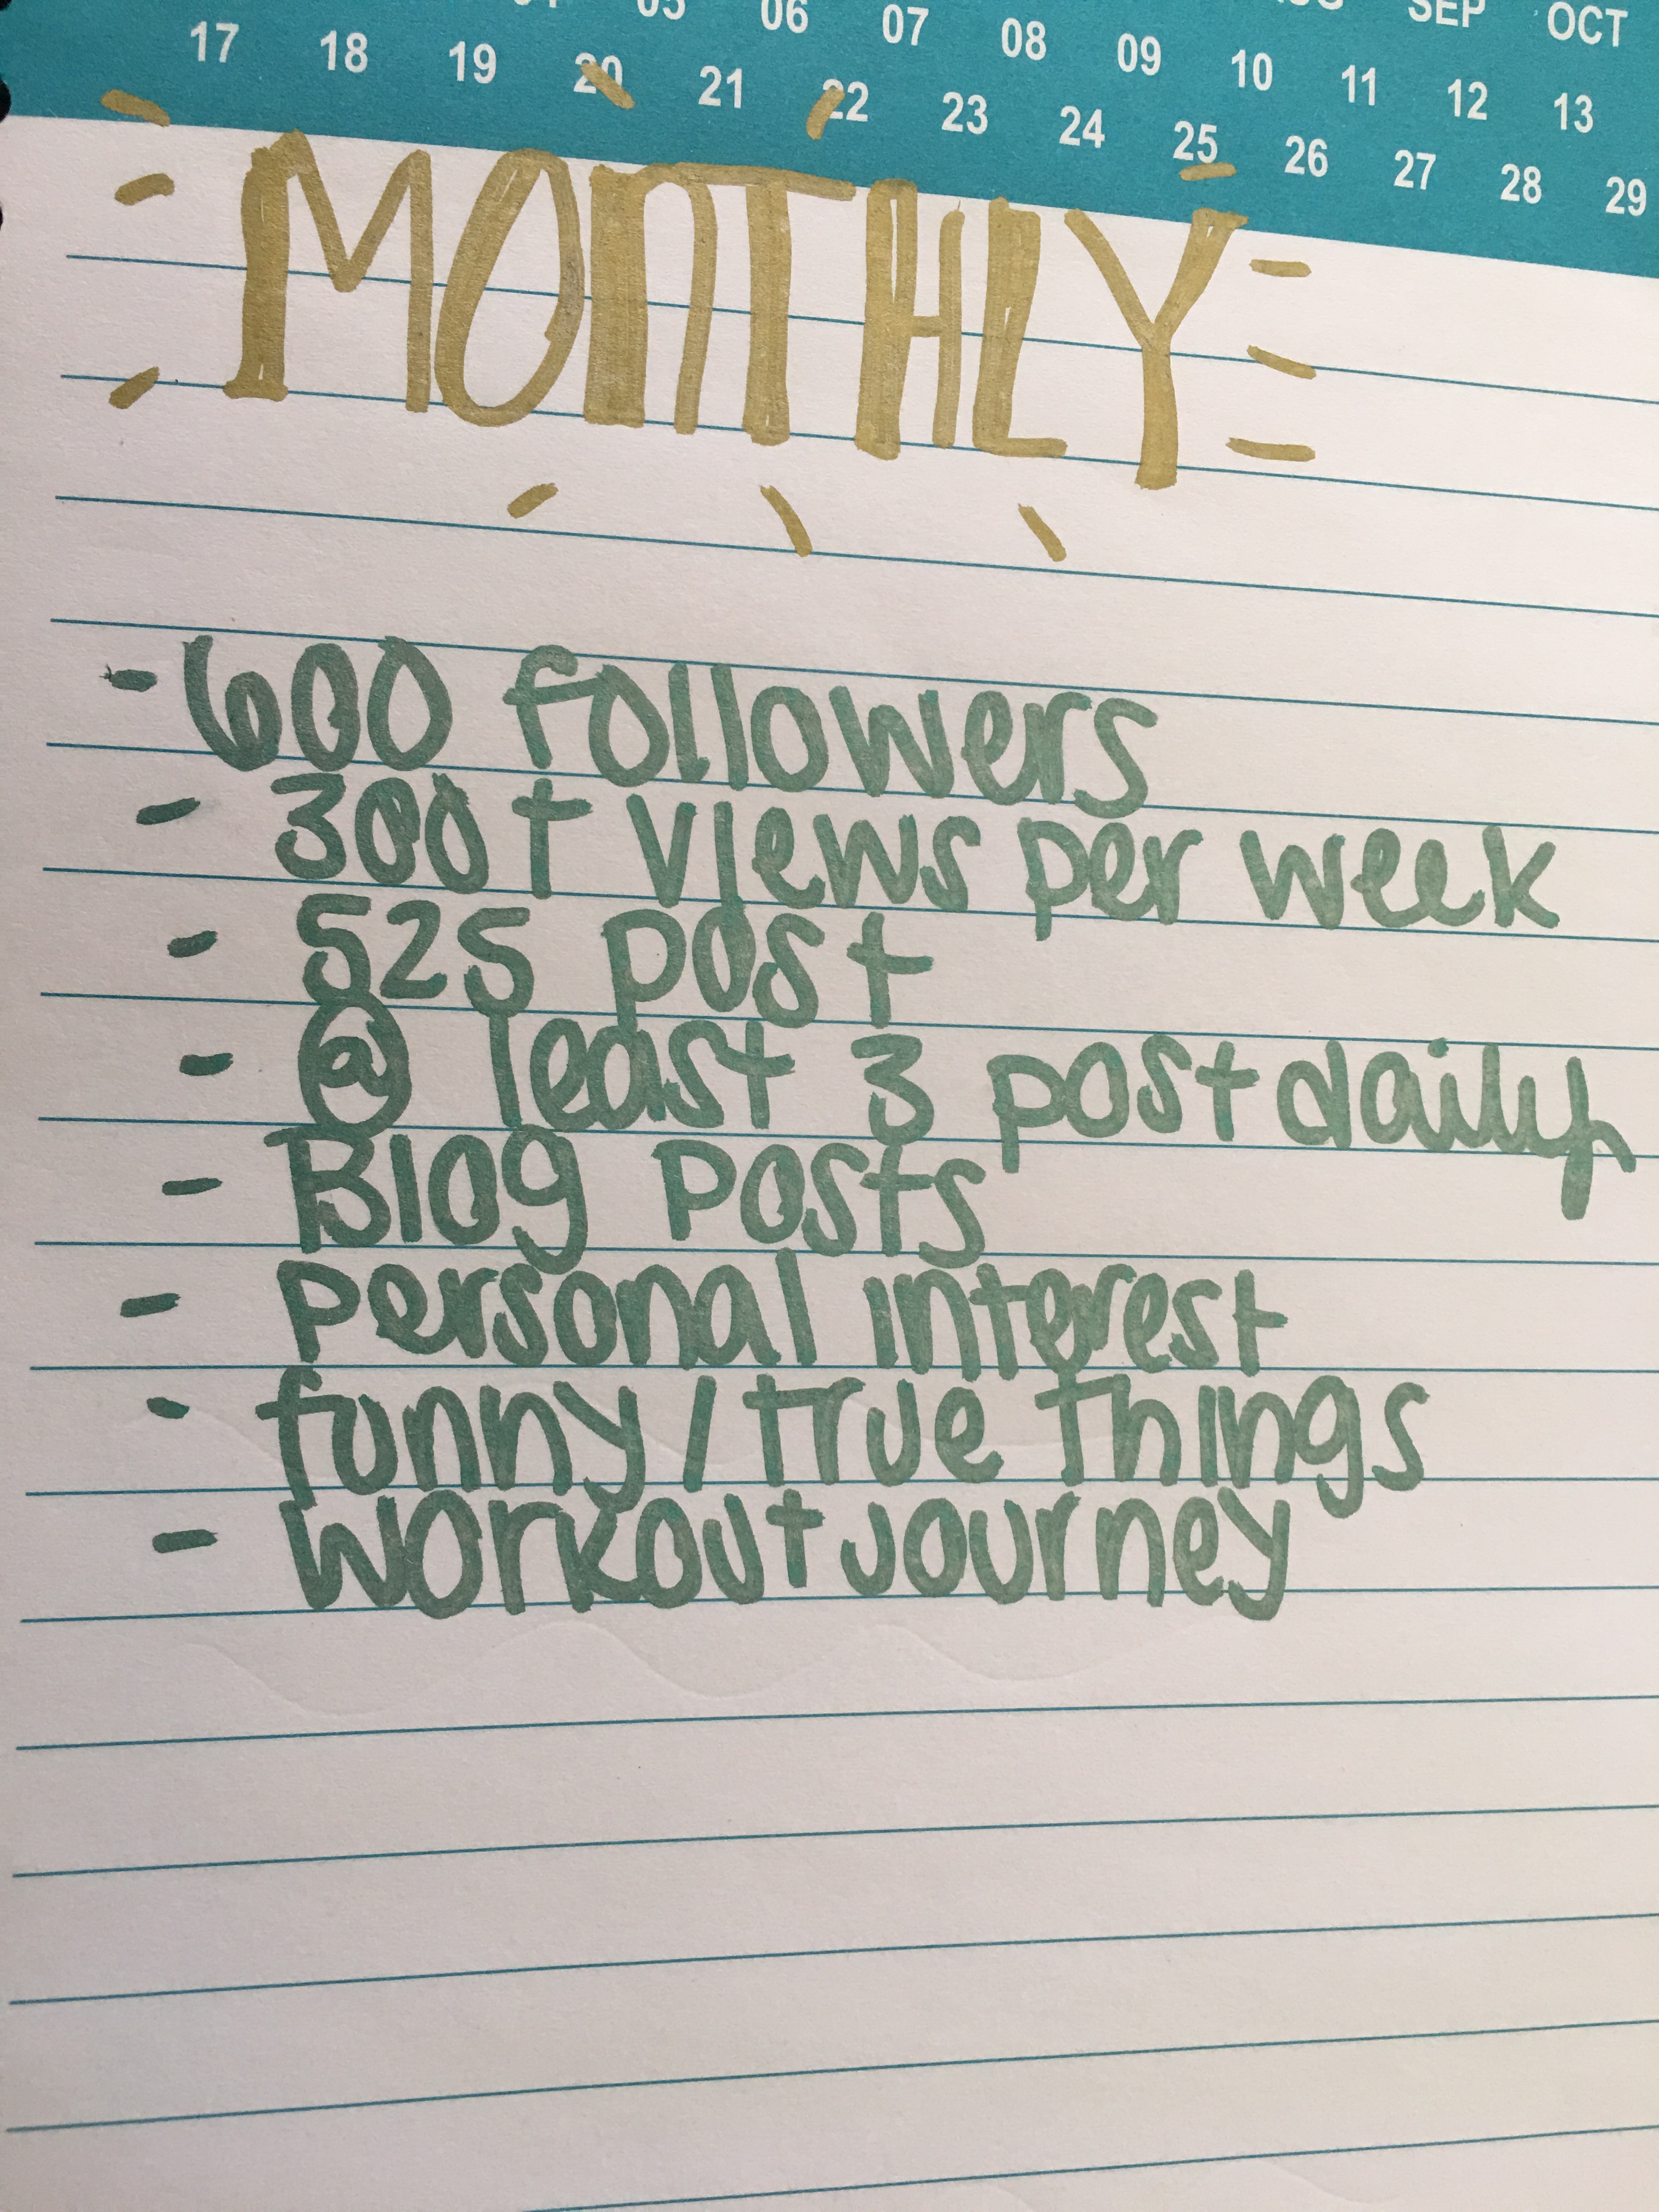 04 05 06 07 08 09 10 11 12 13
SEP OCT
17 18 19 20 21 22 23 24 25 26 27 28 29
MONTHLY
- 600 followers
- 300+ views per week
- 525 post
- @ least 3 post daily
- Blog Posts
- personal interest
- funny/true things
- workout journey